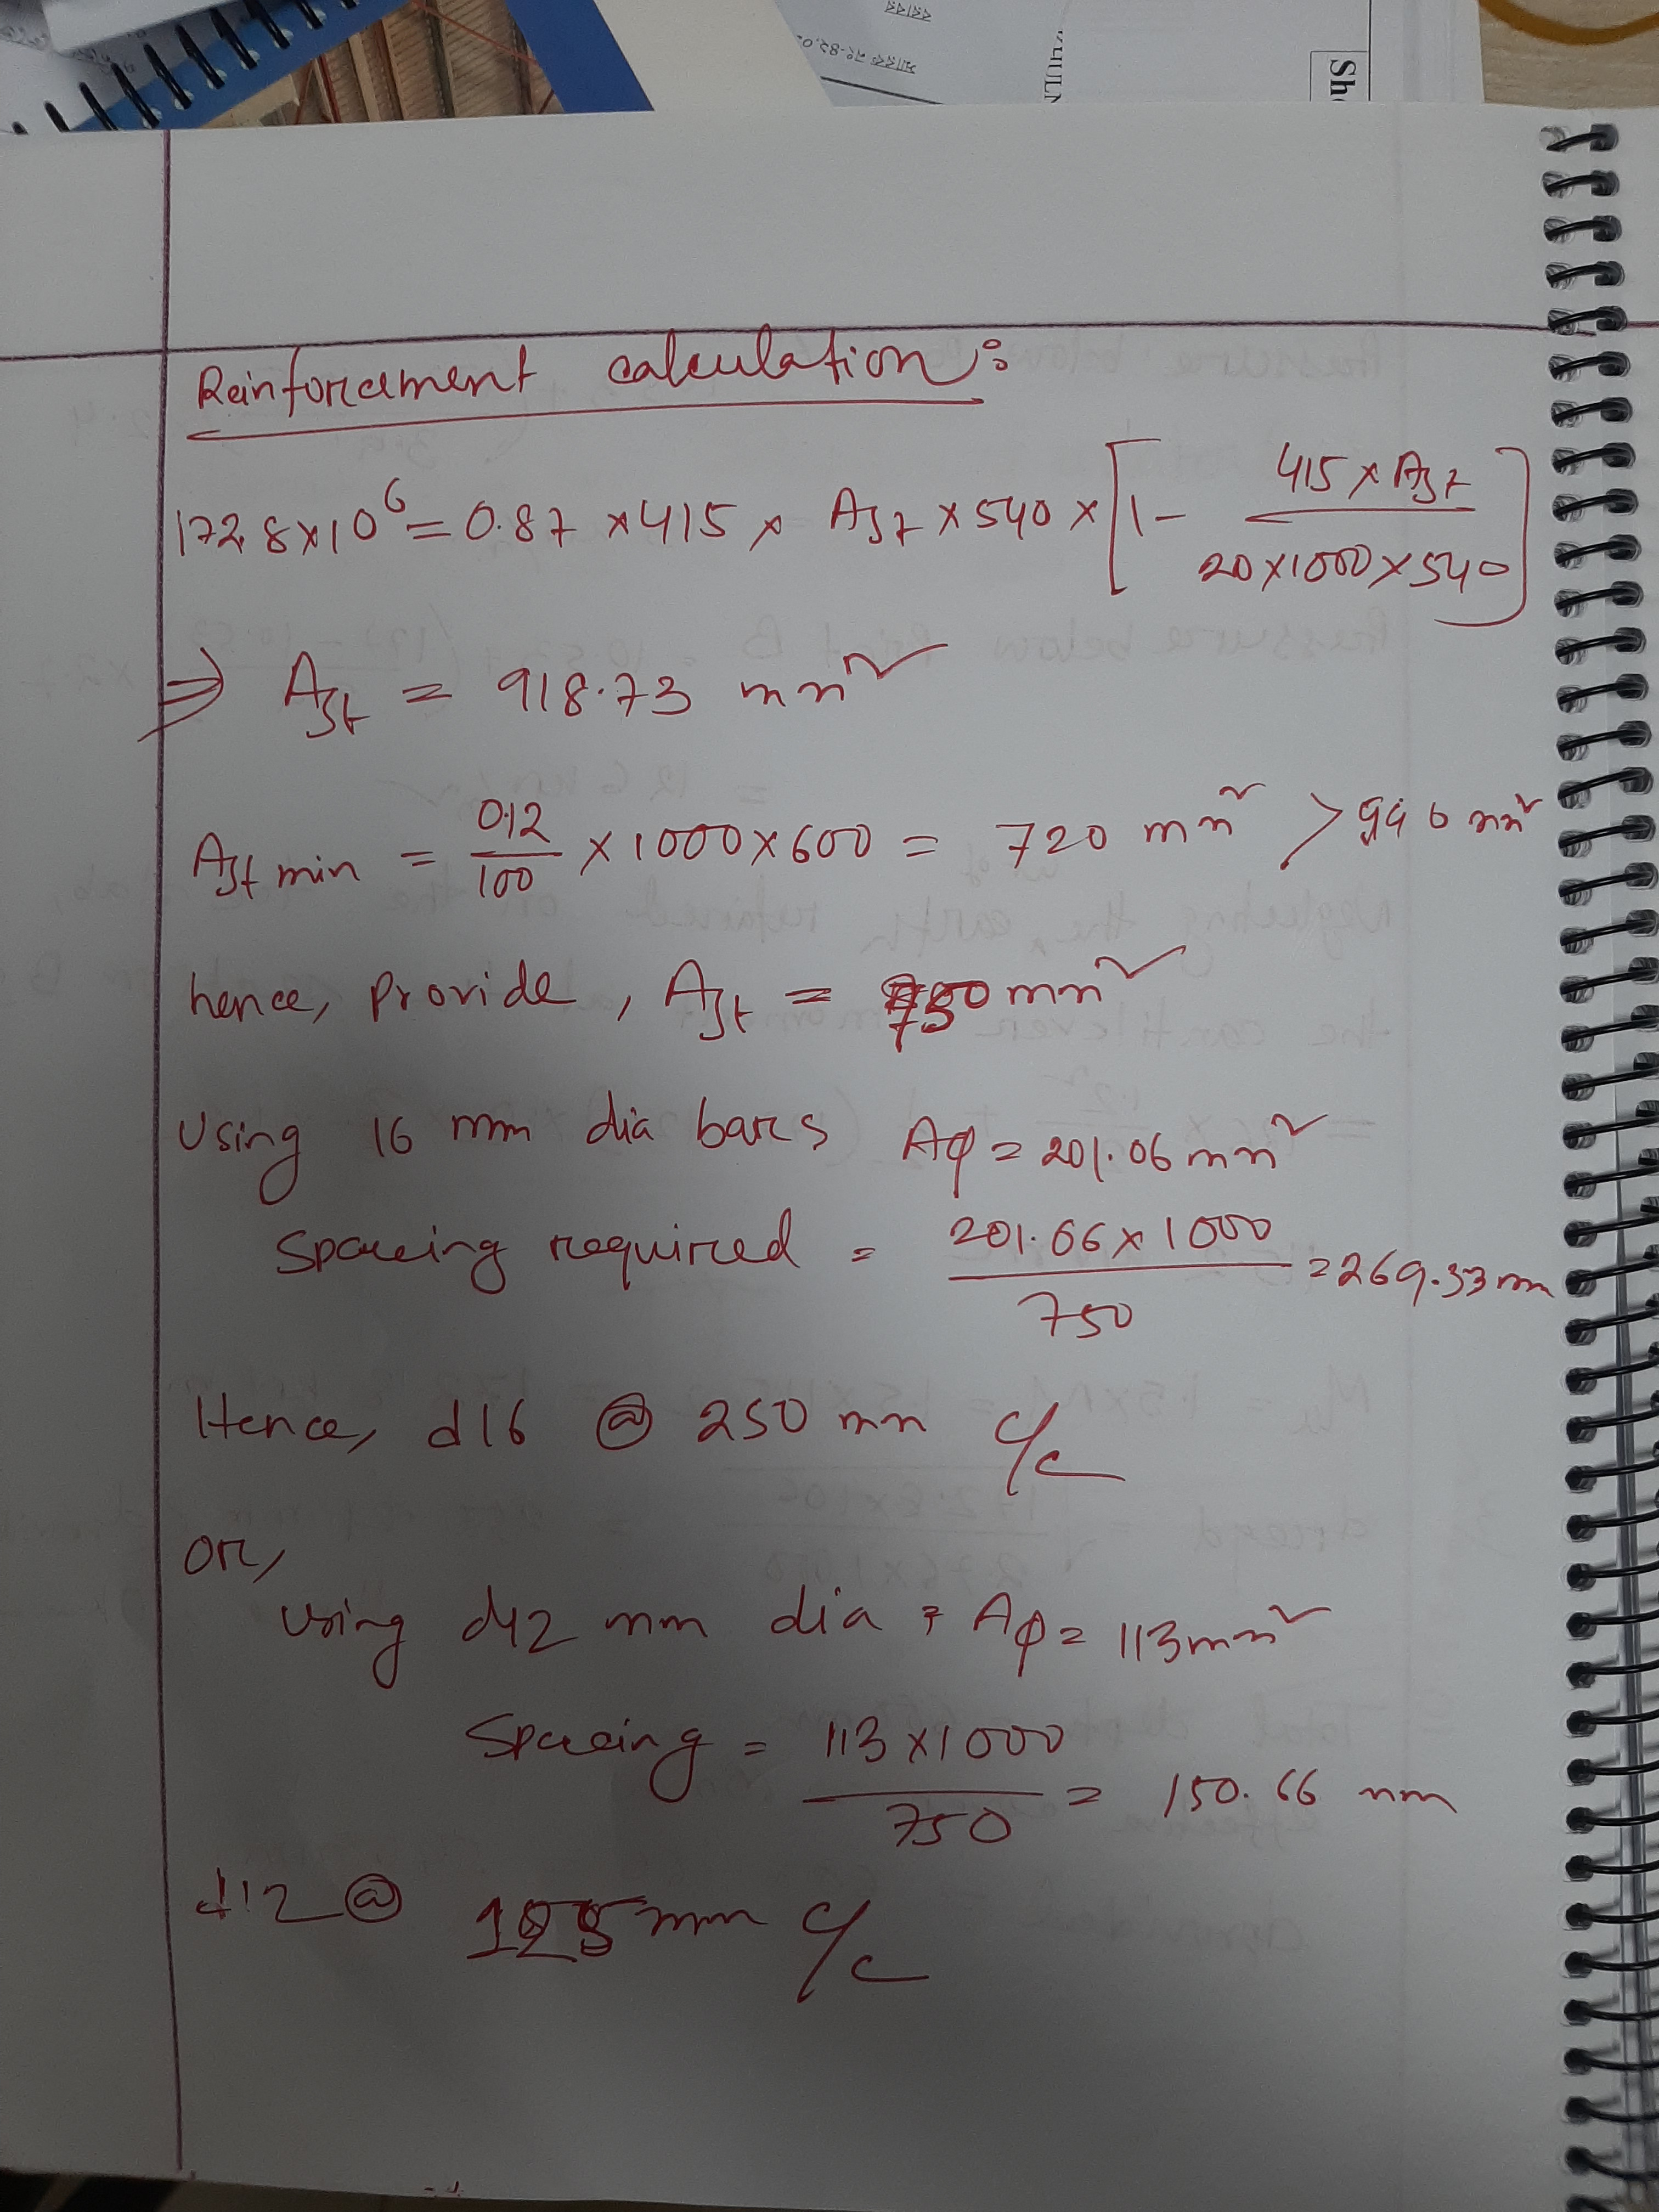 Sh
Reinforcement calculation:
172.8×10⁶ = 0.87 ×415 × Ast × 540 × [1 - 415 × Ast / 20×1000×540]
⇒ Ast = 918.73 mm²
Ast min = 0.12/100 × 1000×600 = 720 mm² > 996 mm²
hence, Provide, Ast = 750 mm²
Using 16 mm dia bars Aφ = 201.06 mm²
Spacing required = 201.06×1000 / 750 = 269.33 mm
Hence, d16 @ 250 mm c/c
or,
using d12 mm dia, Aφ = 113 mm²
Spacing = 113×1000 / 750 = 150.66 mm
d12 @ 125 mm c/c